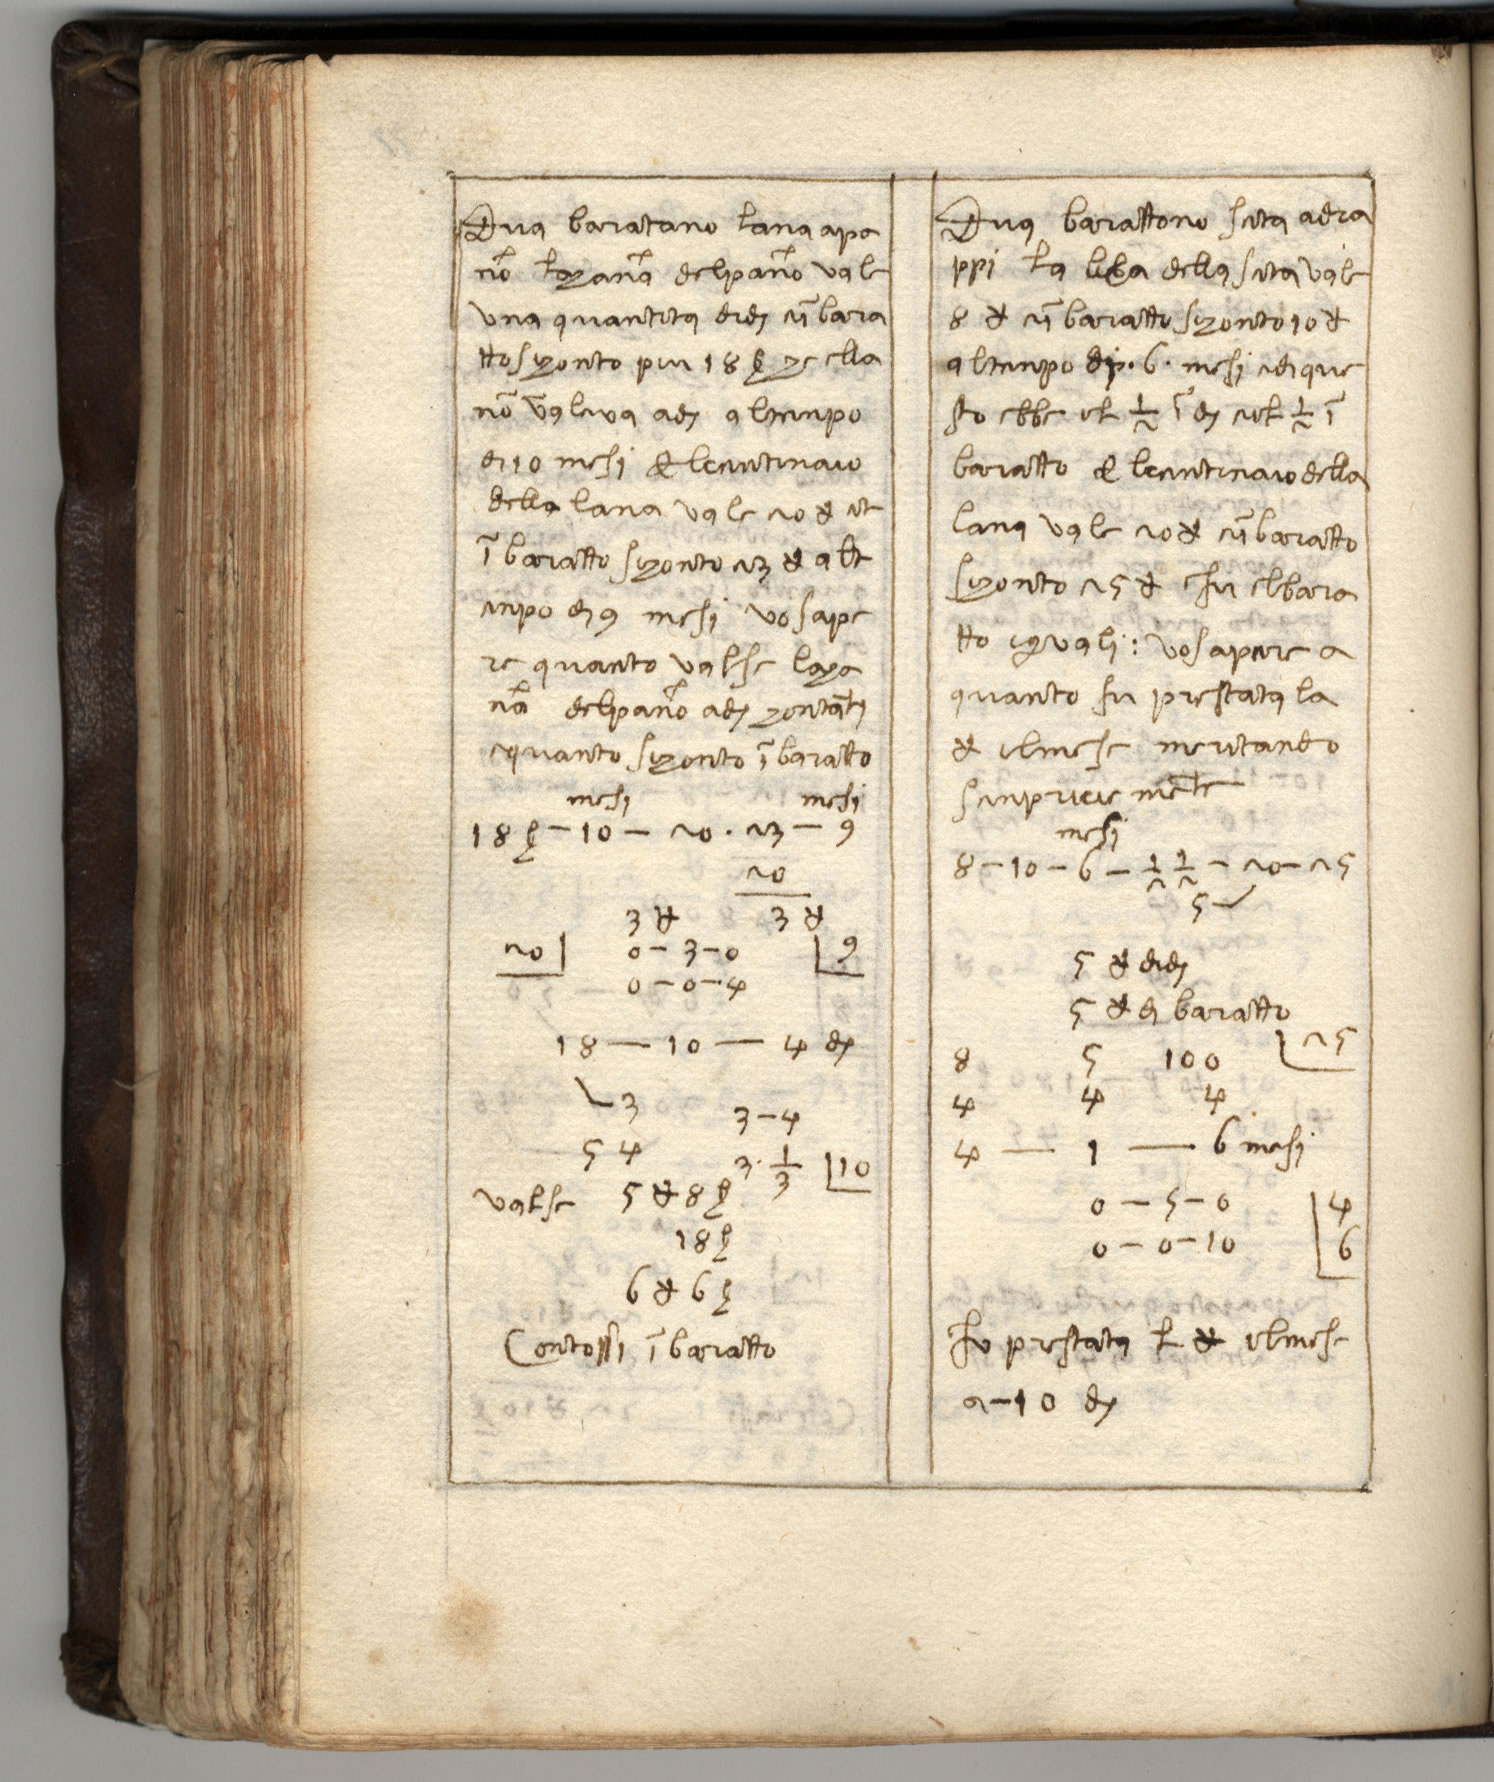 Dua baratano lana apa
no la канa delpano vale
una quantita didj eī bara
tto si conto piu 18 ß che ella
nō valeva adj altenpo
di 10 mesi & lcentinaio
della lana vale 20 ₰ et
ī baratto si conto 23 ₰ alt
enpo di 9 mesi vo sape
re quanto valse la ca
na delpano adj contātj
e quanto si conto ī baratto
mesi mesi
18 ß - 10 - 20 . 23 - 9
20
3 ₰ 3 ₰
20 0 - 3 - 0 9
0 - 0 - 4
18 — 10 — 4 dj
3 3 - 4
5 4 3 · 1/3 10
valse 5 ₰ 8 ß
18 ß
6 ₰ 6 ß
Contossi ī baratto
Dua barattono seta adra
ppi la liba della seta vale
8 ₰ eī baratto si conto 10 ₰
altenpo di · 6 · mesi edi que
sto ebbe el 1/2 ī dj eel 1/2 ī
baratto & lcentinaio della
lana vale 20 ₰ eī baratto
si conto 25 ₰ e fu el bara
tto iguali : vo sapere a
quanto fu prestata la
₰ el mese meritando
senpricie mēte
mesi
8 - 10 - 6 - 1/2 1/2 - 20 - 25
5
5 ₰ didj
5 ₰ di baratto
8 5 100 25
4 4 4
4 — 1 — 6 mesi
0 - 5 - 0 4
0 - 0 - 10 6
fu prestata l ₰ el mese
a - 10 dj